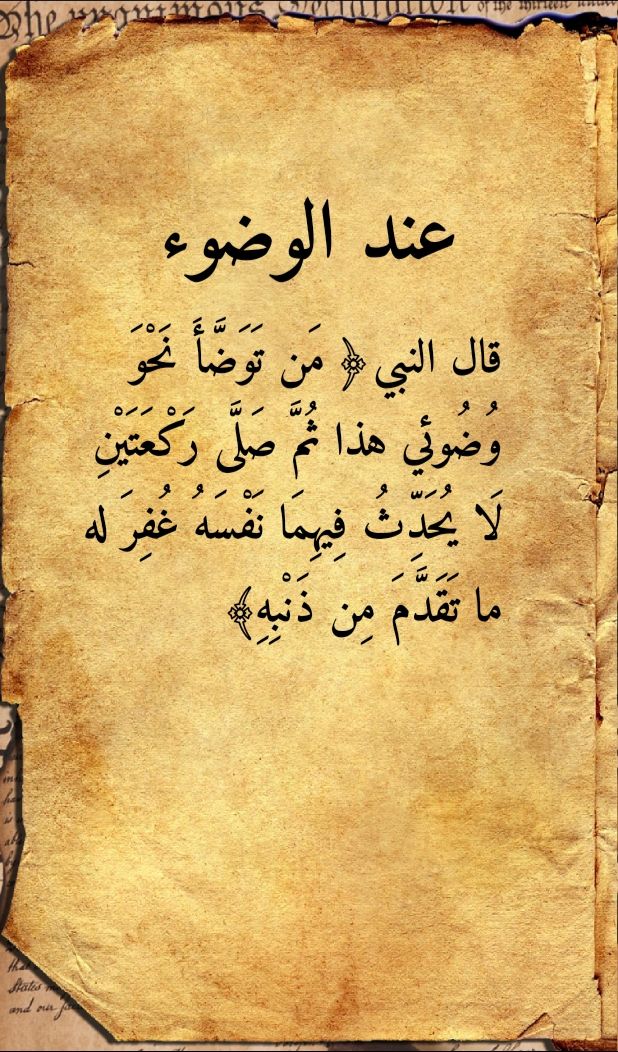 The unanimous Declaration of the thirteen united
عند الوضوء
قال النبي ﴿ مَن تَوَضَّأَ نَحْوَ
وُضُوئي هذا ثُمَّ صَلَّى رَكْعَتَيْنِ
لَا يُحَدِّثُ فِيهِمَا نَفْسَهُ غُفِرَ له
ما تَقَدَّمَ مِن ذَنْبِهِ﴾
States
and our